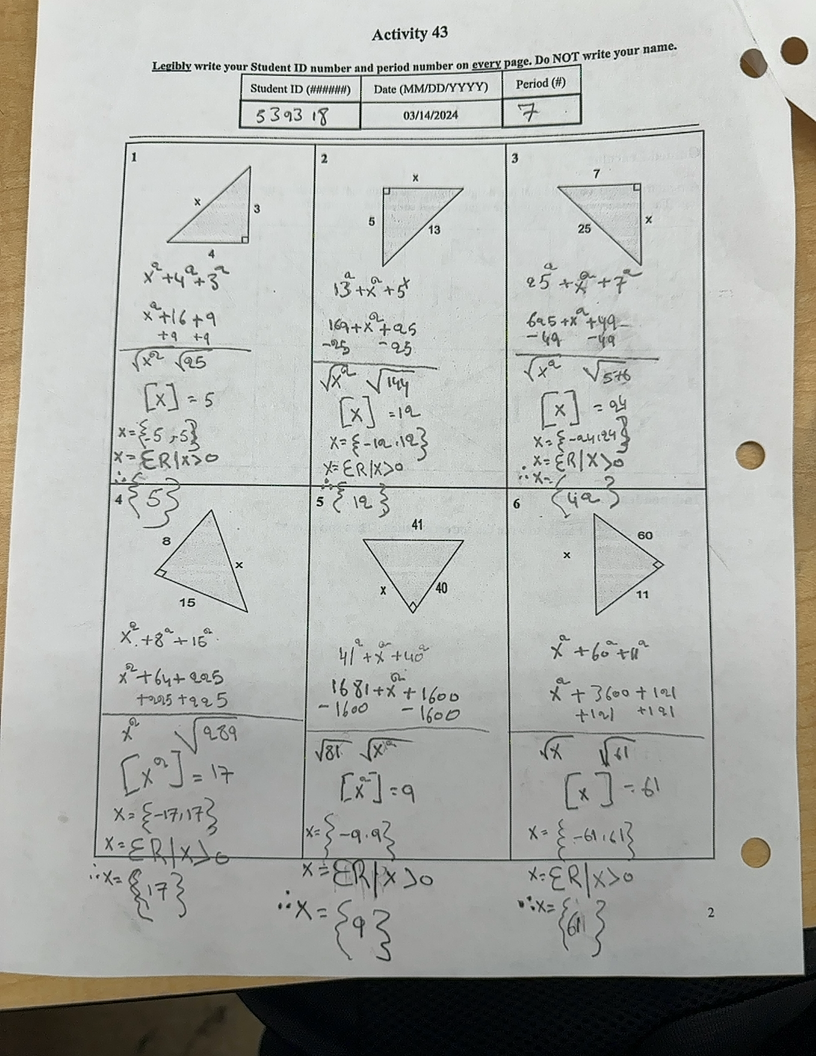 Activity 43
Legibly write your Student ID number and period number on every page. Do NOT write your name.
Student ID (######) Date (MM/DD/YYYY) Period (#)
539318 03/14/2024 7
1
x
3
4
x²+4²+3²
x²+16+9
+9 +9
√x² √25
[x] = 5
x={-5,5}
x=ER|x>0
∴
{5}
2
x
5
13
13²+x²+5²
169+x²+25
-25 -25
√x² √144
[x] =12
x={-12,12}
x=ER|x>0
∴{12}
3
7
x
25
25²+x²+7²
625+x²+49
-49 -49
√x² √576
[x] =24
x={-24,24}
x=ER|x>0
∴x=
{42}
4
8
x
15
x²+8²+15²
x²+64+225
+225+225
x² √289
[x²]=17
x={-17,17}
x=ER|x>0
∴x={17}
5
41
x
40
41²+x²+40²
1681+x²+1600
-1600 -1600
√81 √x²
[x²]=9
x={-9,9}
x=ER|x>0
∴x={9}
6
60
x
11
x²+60²+11²
x²+3600+121
+121 +121
√x √61
[x] =61
x={-61,61}
x=ER|x>0
∴x={61}
2